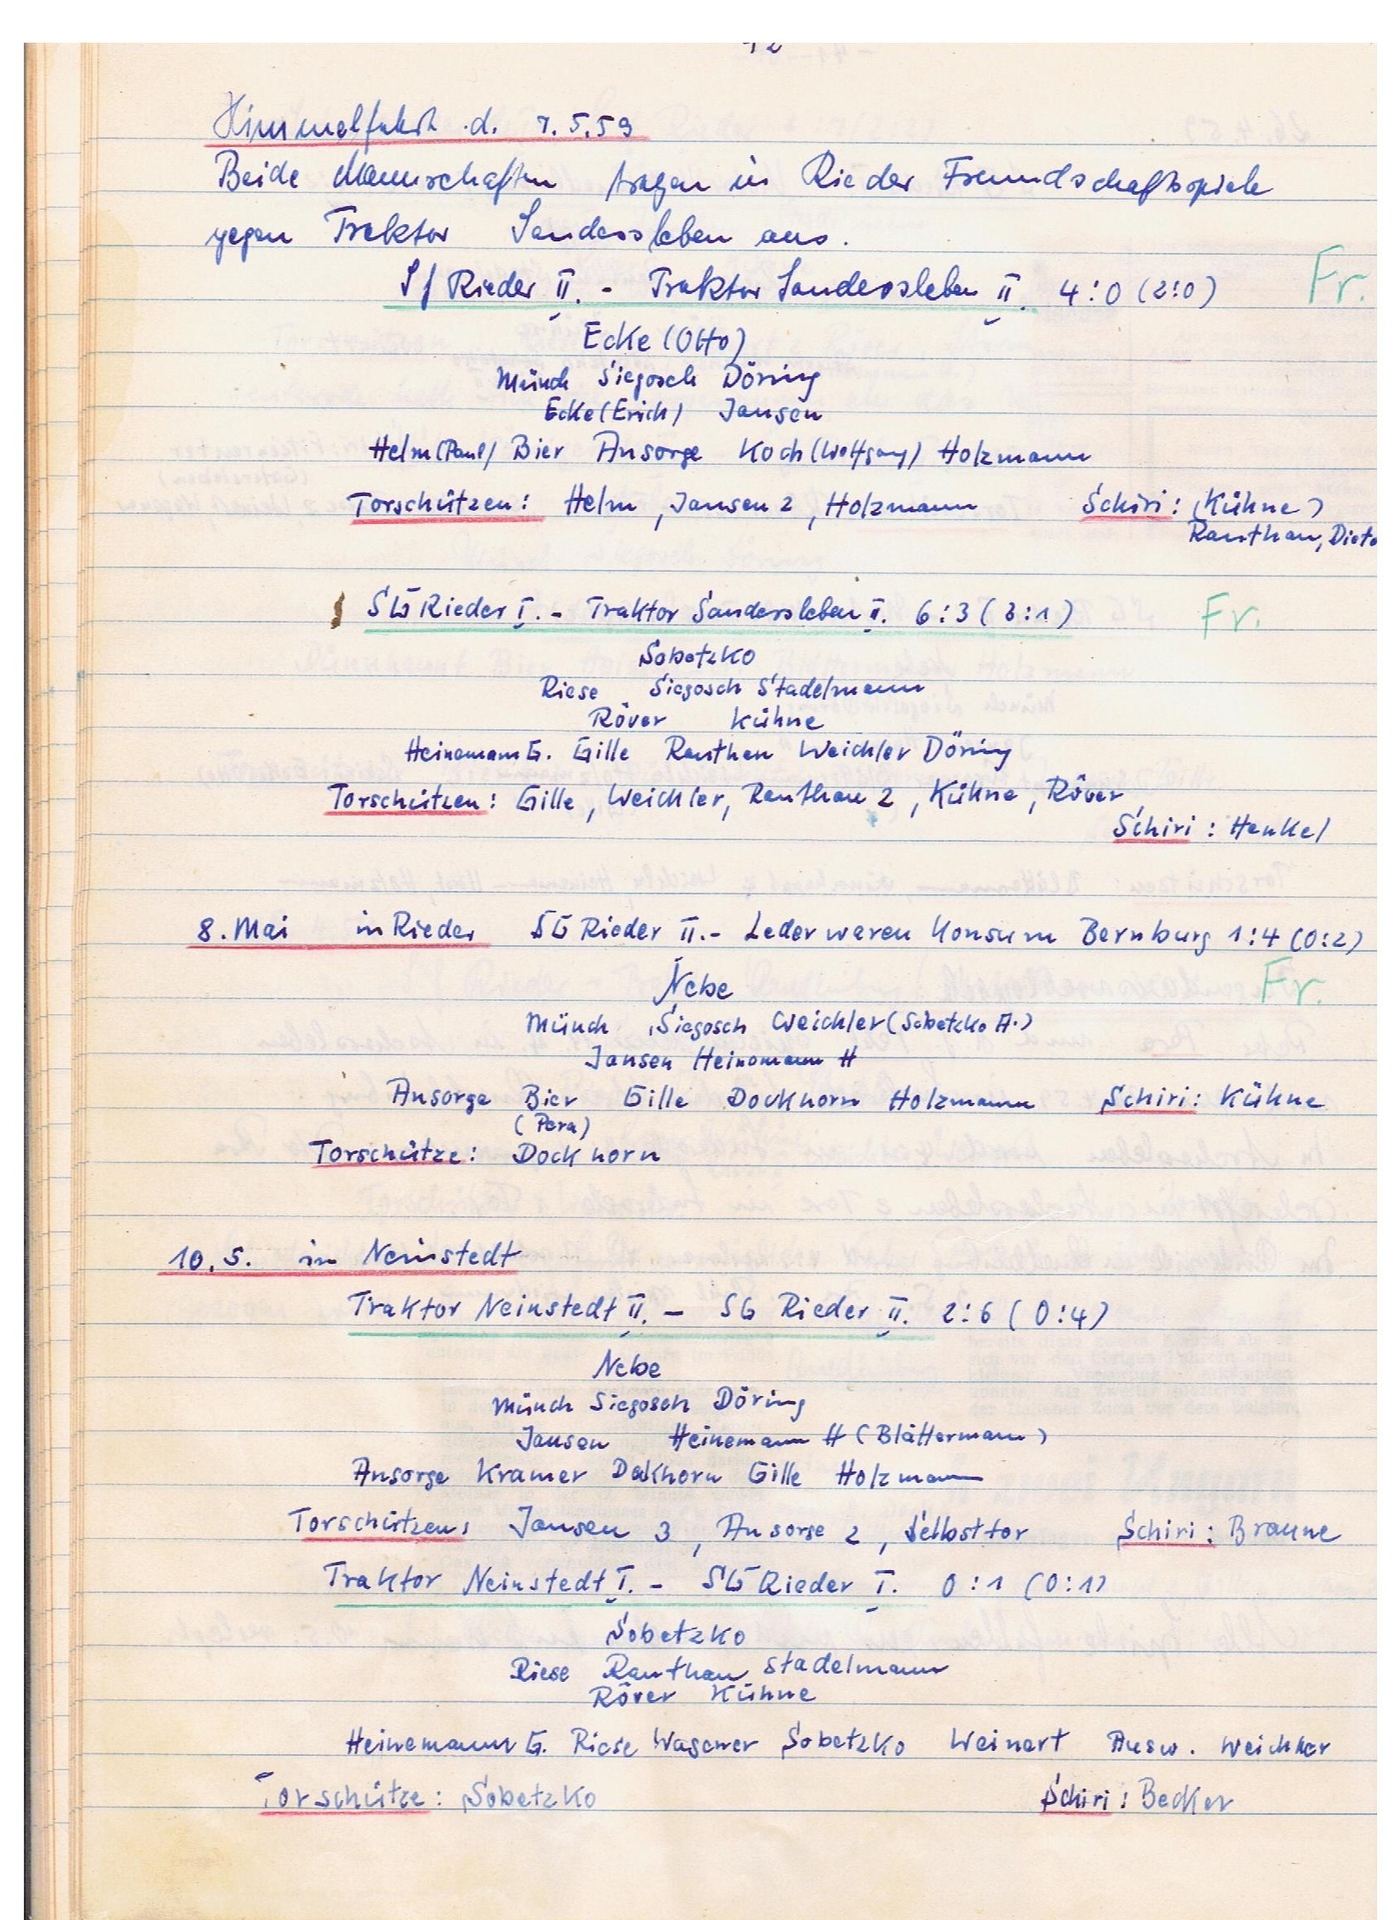 12
Himmelfahrt d. 7.5.59
Beide Mannschaften tragen in Rieder Freundschaftsspiele
gegen Traktor Sandersleben aus.
Sf Rieder II. - Traktor Sandersleben II. 4:0 (2:0) Fr.
Ecke (Otto)
Münch Siegosch Döring
Ecke (Erich) Jansen
Helm (Paul) Bier Ansorge Koch (Wolfgang) Holzmann
Torschützen: Helm, Jansen 2, Holzmann Schiri: (Kühne)
Ranthan, Dieto
SG Rieder I. - Traktor Sandersleben I. 6:3 (3:1) Fr.
Sobetzko
Riese Siegosch Stadelmann
Röver Kühne
Heinemann G. Gille Ranthan Weichler Döring
Torschützen: Gille, Weichler, Ranthan 2, Kühne, Röver,
Schiri: Henkel
8. Mai in Rieder SG Rieder II. - Lederwaren Konsum Bernburg 1:4 (0:2)
Nebe Fr.
Münch Siegosch Weichler (Sobetzko A.)
Jansen Heinemann H
Ansorge Bier Gille Dockhorn Holzmann Schiri: Kühne
(Pera)
Torschütze: Dockhorn
10.5. in Neinstedt
Traktor Neinstedt II. - SG Rieder II. 2:6 (0:4)
Nebe
Münch Siegosch Döring
Jansen Heinemann H (Blättermann)
Ansorge Kramer Dockhorn Gille Holzmann
Torschützen: Jansen 3, Ansorge 2, Selbsttor Schiri: Braune
Traktor Neinstedt I. - SG Rieder I. 0:1 (0:1)
Sobetzko
Riese Ranthan Stadelmann
Röver Kühne
Heinemann G. Riese Wagener Sobetzko Weinert Ausw. Weichler
Torschütze: Sobetzko Schiri: Becker